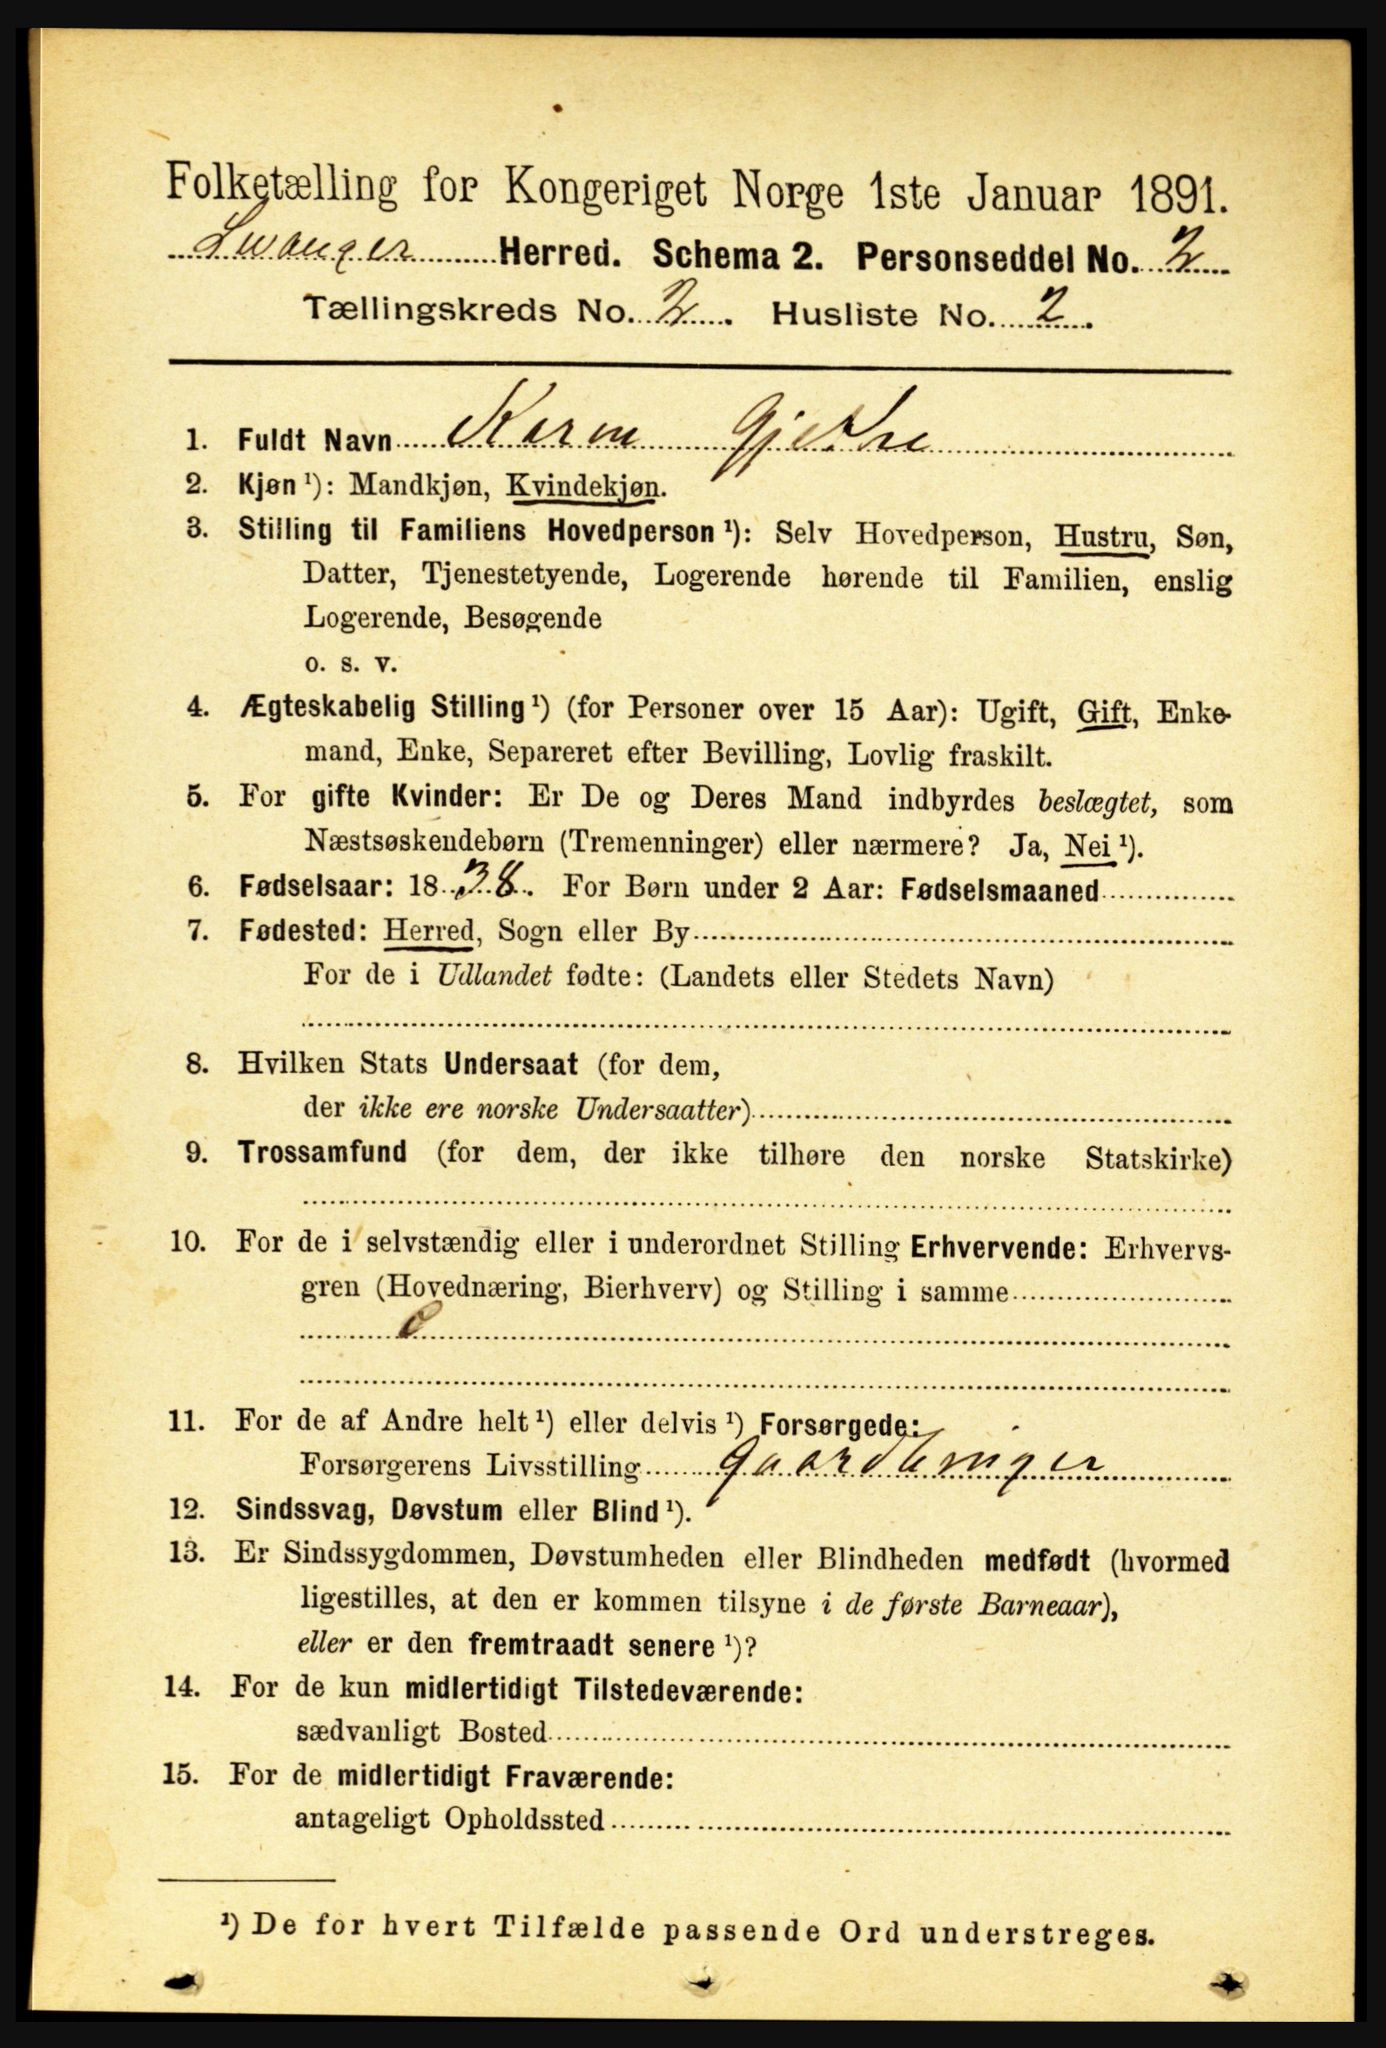 Folketælling for Kongeriget Norge 1ste Januar 1891.
Lwanger Herred. Schema 2. Personseddel No. 2
Tællingskreds No. 2. Husliste No. 2.
1. Fuldt Navn Karen Gjekre
2. Kjøn ¹): Mandkjøn, Kvindekjøn.
3. Stilling til Familiens Hovedperson ¹): Selv Hovedperson, Hustru, Søn,
Datter, Tjenestetyende, Logerende hørende til Familien, enslig
Logerende, Besøgende
o. s. v.
4. Ægteskabelig Stilling ¹) (for Personer over 15 Aar): Ugift, Gift, Enke-
mand, Enke, Separeret efter Bevilling, Lovlig fraskilt.
5. For gifte Kvinder: Er De og Deres Mand indbyrdes beslægtet, som
Næstsøskendebørn (Tremenninger) eller nærmere? Ja, Nei ¹).
6. Fødselsaar: 1838. For Børn under 2 Aar: Fødselsmaaned
7. Fødested: Herred, Sogn eller By
For de i Udlandet fødte: (Landets eller Stedets Navn)
8. Hvilken Stats Undersaat (for dem,
der ikke ere norske Undersaatter)
9. Trossamfund (for dem, der ikke tilhøre den norske Statskirke)
10. For de i selvstændig eller i underordnet Stilling Erhvervende: Erhvervs-
gren (Hovednæring, Bierhverv) og Stilling i samme
0
11. For de af Andre helt ¹) eller delvis ¹) Forsørgede:
Forsørgerens Livsstilling Gaardbruger
12. Sindssvag, Døvstum eller Blind ¹).
13. Er Sindssygdommen, Døvstumheden eller Blindheden medfødt (hvormed
ligestilles, at den er kommen tilsyne i de første Barneaar),
eller er den fremtraadt senere ¹)?
14. For de kun midlertidigt Tilstedeværende:
sædvanligt Bosted
15. For de midlertidigt Fraværende:
antageligt Opholdssted
¹) De for hvert Tilfælde passende Ord understreges.